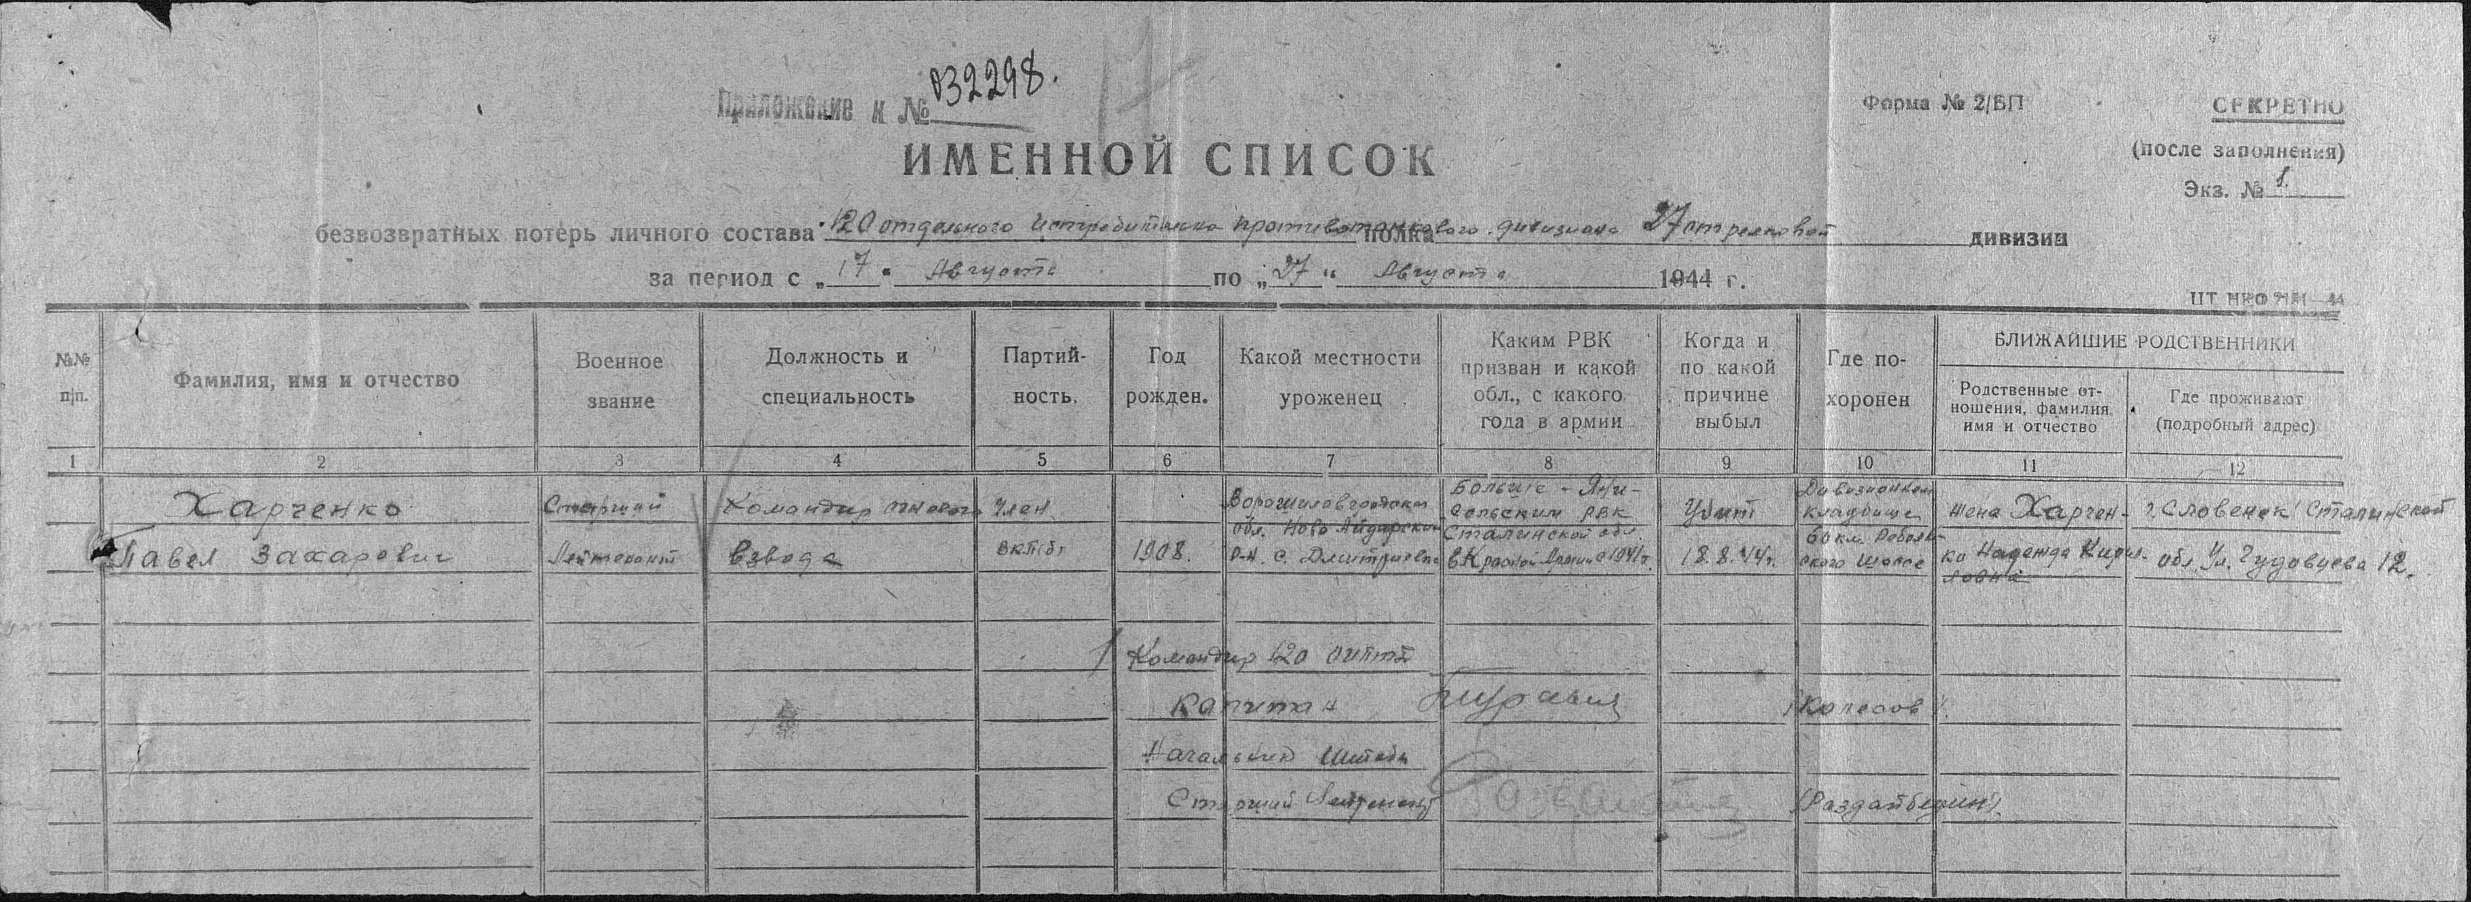 Приложение к № 032298.
Форма № 2/БП
СЕКРЕТНО
(после заполнения)
Экз. № 1.
ИМЕННОЙ СПИСОК
безвозвратных потерь личного состава 120 отдельного Истребительно противотанкового дивизиона полка 27 стрелковой дивизии
за период с „17“ Августа по „27“ Августа 1944 г.
№№ п/п.
Фамилия, имя и отчество
Военное звание
Должность и специальность
Партий-
ность.
Год рожден.
Какой местности уроженец
Каким РВК
призван и какой
обл., с какого
года в армии
Когда и
по какой
причине
выбыл
Где по-
хоронен
БЛИЖАЙШИЕ РОДСТВЕННИКИ
Родственные от-
ношения, фамилия,
имя и отчество
Где проживают
(подробный адрес)
1 2 3 4 5 6 7 8 9 10 11 12
Харченко
Павел Захарович
Старший
Лейтенант
Командир огневого
взвода
Член
ВКП/б/
1908.
Ворошиловградская
обл. Ново Айдарский
р-н. с. Дмитриевка
Больше-Яни-
сольским РВК
Сталинской обл.
в Красной Армии с 1941 г.
Убит
18.8.44 г.
Дивизионном
кладбище
шоссе
жена Харчен-
ко Надежда Кирил-
ловна
г. Словенск Сталинской
обл. Ул. 12.
Командир 120 оиптд
Капитан
/Колесов/
Начальник Штаба
Старший Лейтенант